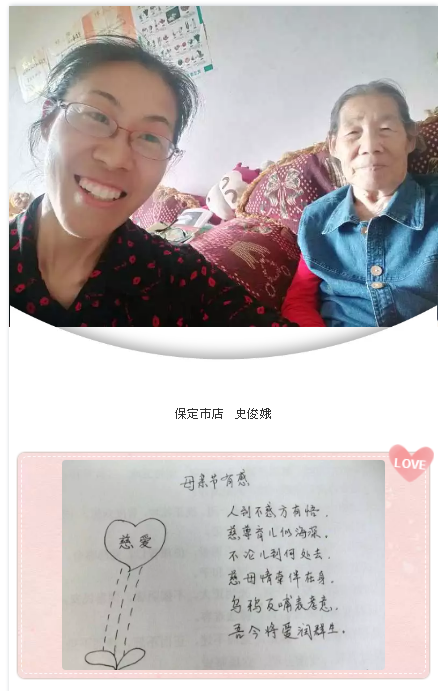 保定市店　史俊娥
LOVE
母亲节有感
慈爱
人到不惑方有悟.
慈尊育儿似海深.
不论儿到何处去.
慈母情牵伴在身.
乌鸦反哺表孝意.
吾今将爱润群生.